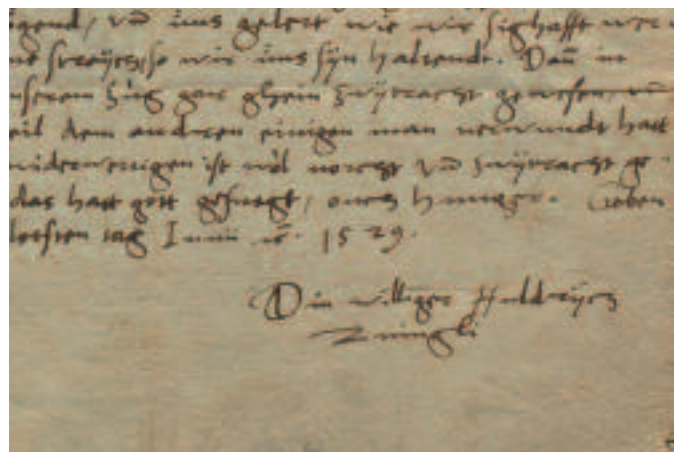 ügend, vnd uns gelert wie wir sighafft wer
so wir uns syn haltendt. Dann in
unserem zug gar ghein zwytracht gewesen, vnd
teil dem andren einigen man verwundt hatt
widerwertigen ist vil vorcht vnd zwytracht ge
das hatt gott gefuegt, ouch hunger. Geben
letsten tag Iunii 1529.
Din williger Huldrych
Zuingli